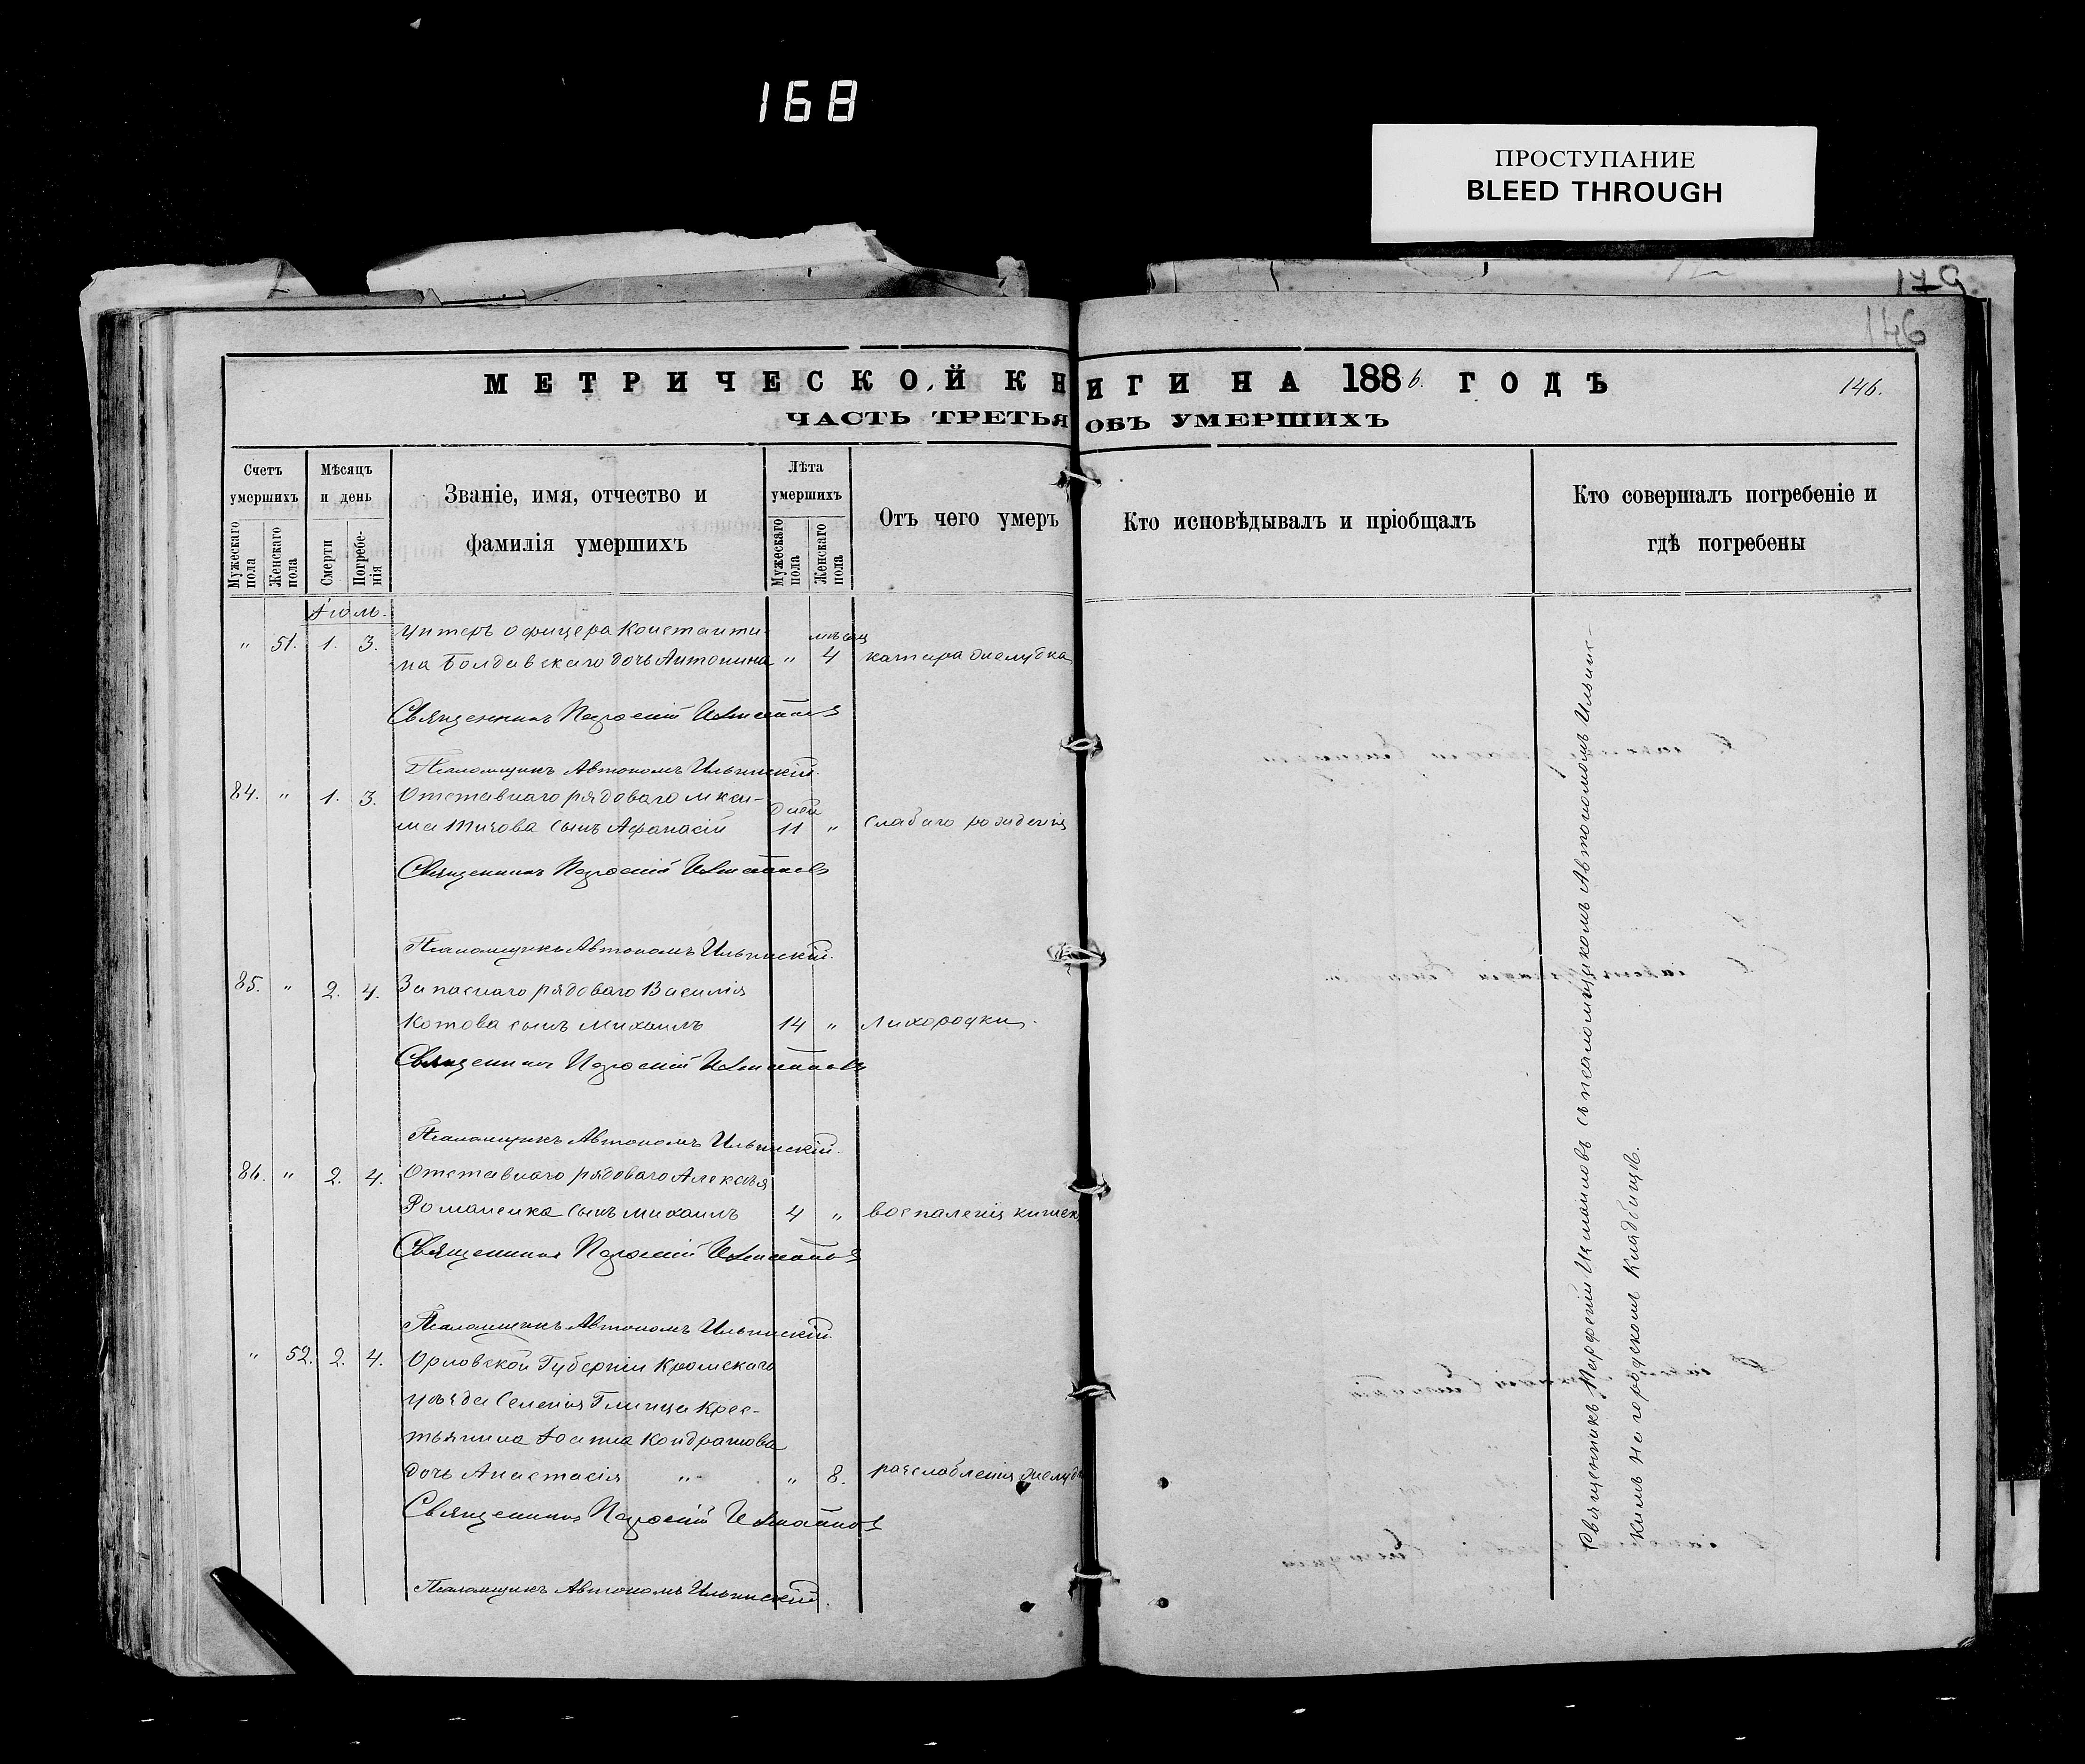 168
ПРОСТУПАНИЕ
BLEED THROUGH
179
146
МЕТРИЧЕСКОЙ КНИГИ НА 1886. ГОДЪ
146.
ЧАСТЬ ТРЕТЬЯ ОБЪ УМЕРШИХЪ
Счетъ умершихъ
Мужескаго пола
Женскаго пола
Мѣсяцъ и день
Смерти
Погребенія
Званіе, имя, отчество и
фамилія умершихъ
Лѣта умершихъ
Мужескаго пола
Женскаго пола
Отъ чего умеръ
Кто исповѣдывалъ и пріобщалъ
Кто совершалъ погребеніе и
гдѣ погребены
Іюль.
" 51. 1. 3. Унтеръ офицера Констант­и-
на Болдавскаго дочь Антонина " 4 катара желудка
Священникъ Парѳеній
Псаломщикъ Автономъ Ильинскій.
84. " 1. 3. Отставнаго рядоваго Макси-
ма сынъ Афанасій дней 11 " слабаго рожденія
Священникъ Парѳеній
Псаломщикъ Автономъ Ильинскій.
85. " 2. 4. Запаснаго рядоваго Василія
Котова сынъ Михаилъ 14 " Лихорадки.
Священникъ Парѳеній
Псаломщикъ Автономъ Ильинскій.
86. " 2. 4. Отставнаго рядоваго Алексѣя
Романенка сынъ Михаилъ 4 " воспаленія кишек
Священникъ Парѳеній
Псаломщикъ Автономъ Ильинскій.
" 52. 2. 4. Орловской Губерніи Кромскаго
уѣзда Селенія Глинца Крес-
тьянина Іоанна Кондрашова
дочь Анастасія " " 8. разслабленія желуд
Священникъ Парѳеній
Псаломщикъ Автономъ Ильинскій.
Священникъ Парфеній съ псаломщикомъ Автономомъ Ильинс-
кимъ на городскомъ Кладбищѣ.